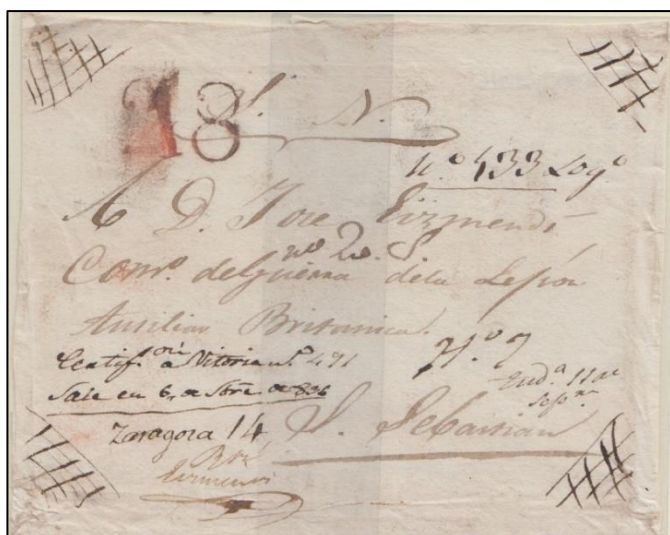 18 S. N.
n.º 433 Log.º
A D. Jose Eizmendi
Com.º de Guerra dela Lejion
nº 2.
Ausiliar Britanica.
Certif.on a Vitoria n.º 491
n.º 7
Sale en 6, de Stre de 836
11 de
Zaragoza 14
S. Sebastian